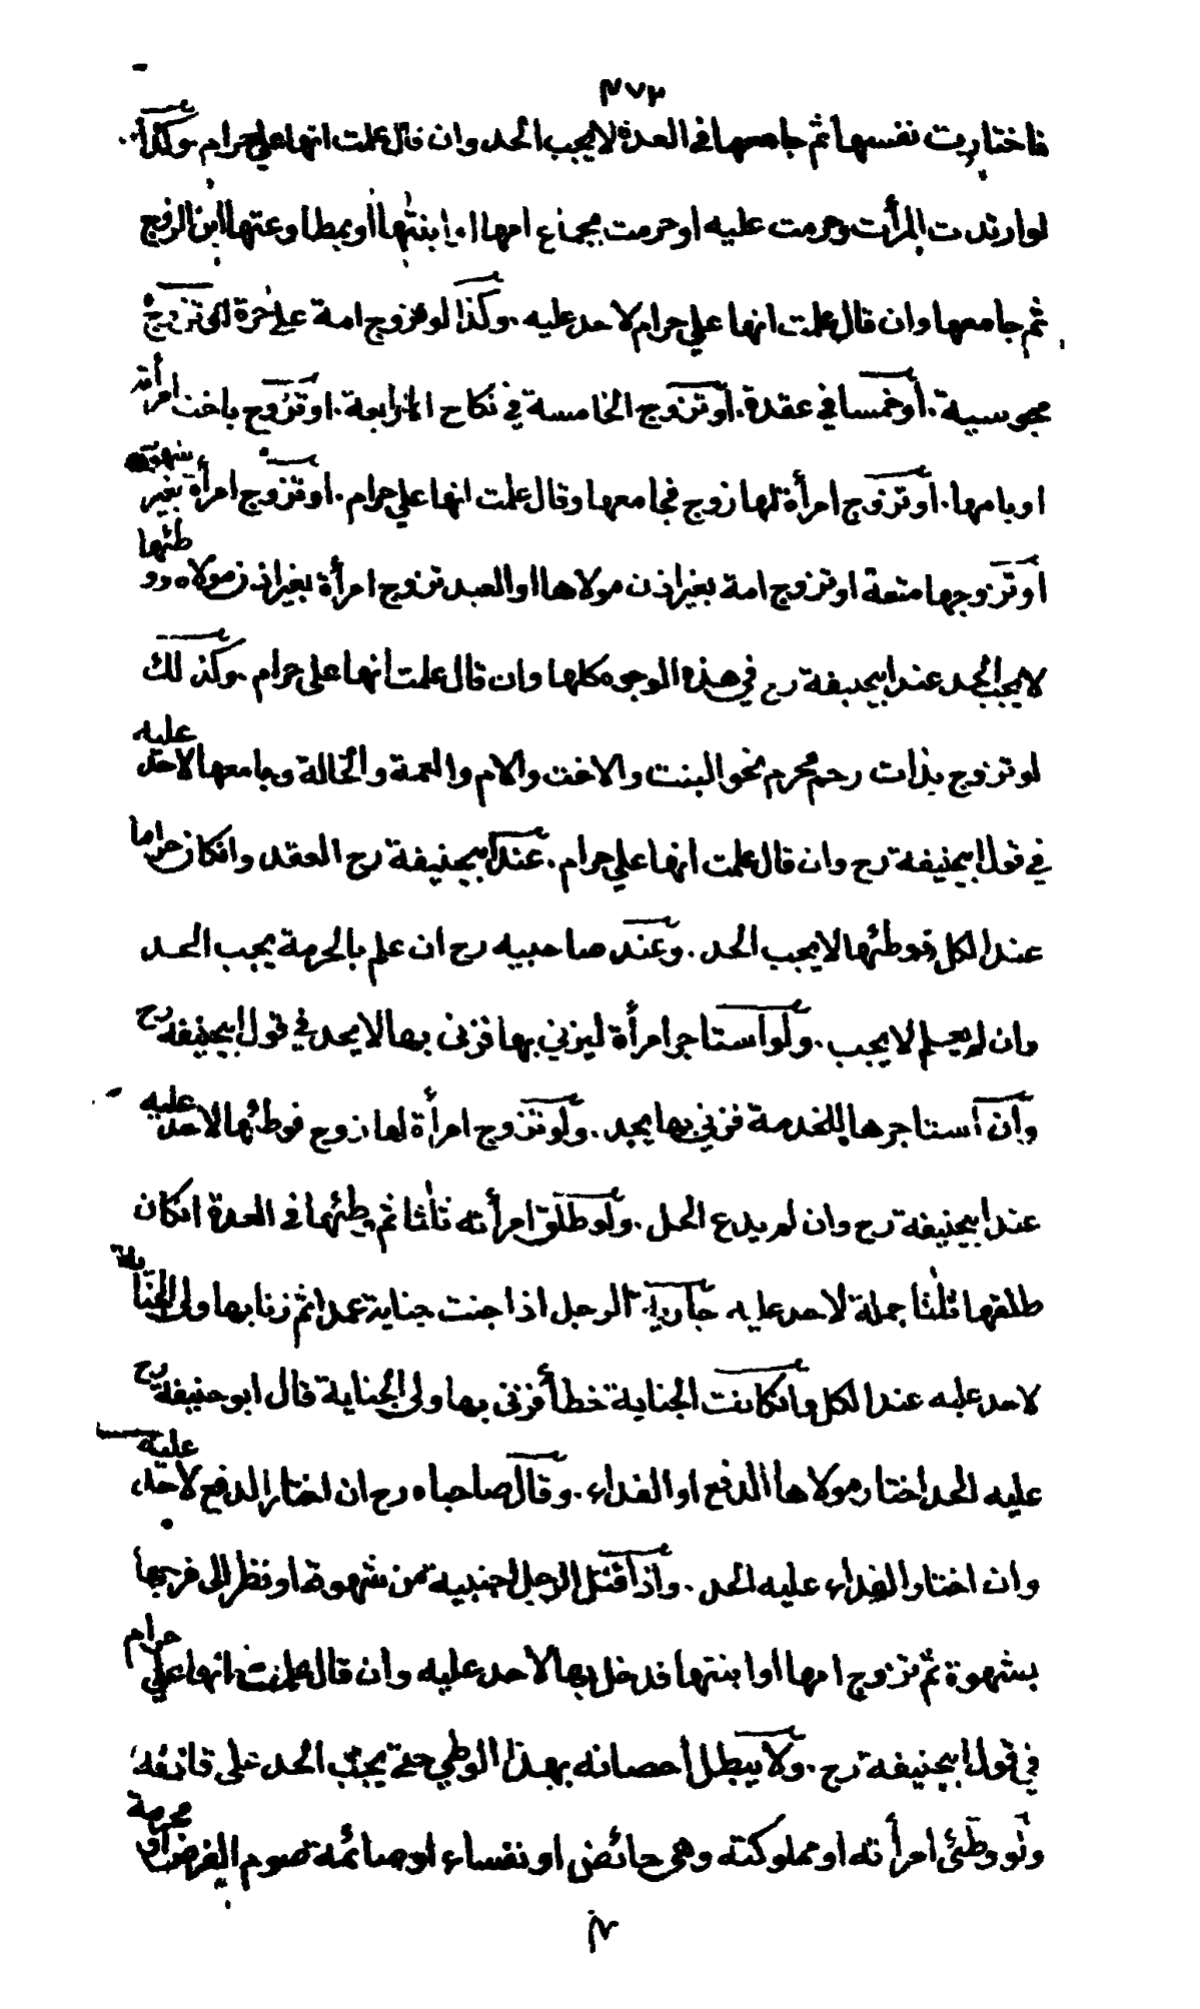 ٤٧٢
فاختارت نفسها ثم جامعها في العدة لا يجب الحد وان قال علمت انها علي حرام وكذا
لو ارتدت المرأت وحرمت عليه او حرمت بجماع امها او ابنتها او بمطاوعتها ابن الزوج
ثم جامعها وان قال علمت انها علي حرام لا حد عليه . وكذا لو تزوج امة علي حرة او تزوج
مجوسية . او خمسا في عقدة . او تزوج الخامسة في نكاح الرابعة . او تزوج باخت امرأته
او بامها . او تزوج امرأة لها زوج فجامعها وقال علمت انها علي حرام . او تزوج امرأة بغير شهود
او تزوجها متعة او تزوج امة بغير اذن مولاها او العبد تزوج امرأة بغير اذن مولاه ووطئها
لا يجب الحد عند ابيحنيفة رح في هذه الوجوه كلها وان قال علمت انها علي حرام . وكذلك
لو تزوج بذات رحم محرم نحو البنت والاخت والام والعمة والخالة وجامعها لا حد عليه
في قول ابيحنيفة رح وان قال علمت انها علي حرام . عند ابيحنيفة رح العقد وانكان حراما
عند الكل فوطئها لا يجب الحد . وعند صاحبيه رح ان علم بالحرمة يجب الحد
وان لم يعلم لا يجب . ولو استاجر امرأة ليزني بها فزنى بها لا يحد في قول ابيحنيفة رح
وان استاجرها للخدمة فزني بها يحد . ولو تزوج امرأة لها زوج فوطئها لا حد عليه
عند ابيحنيفة رح وان لم يدع الحل . ولو طلق امرأته ثلثا ثم وطئها في العدة انكان
طلقها ثلثا جملة لا حد عليه جارية الرجل اذا جنت جناية عمدا ثم زنا بها ولي الجناية
لا حد عليه عند الكل وانكانت الجناية خطأ فزنى بها ولي الجناية قال ابو حنيفة رح
عليه الحد اختار مولاها الدفع او الفداء . وقال صاحباه رح ان اختار الدفع لا حد عليه
وان اختار الفداء عليه الحد . واذا قبل الرجل اجنبية عن شهوة او نظر الى فرجها
بشهوة ثم تزوج امها او ابنتها فدخل بها لا حد عليه وان قال علمت انها علي حرام
في قول ابيحنيفة رح . ولا يبطل احصانه بهذا الوطي حتي يجب الحد علي قاذفه
ولو وطئ امرأته او مملوكته وهي حائض او نفساء او صائمة صوم الفرض او محرمة